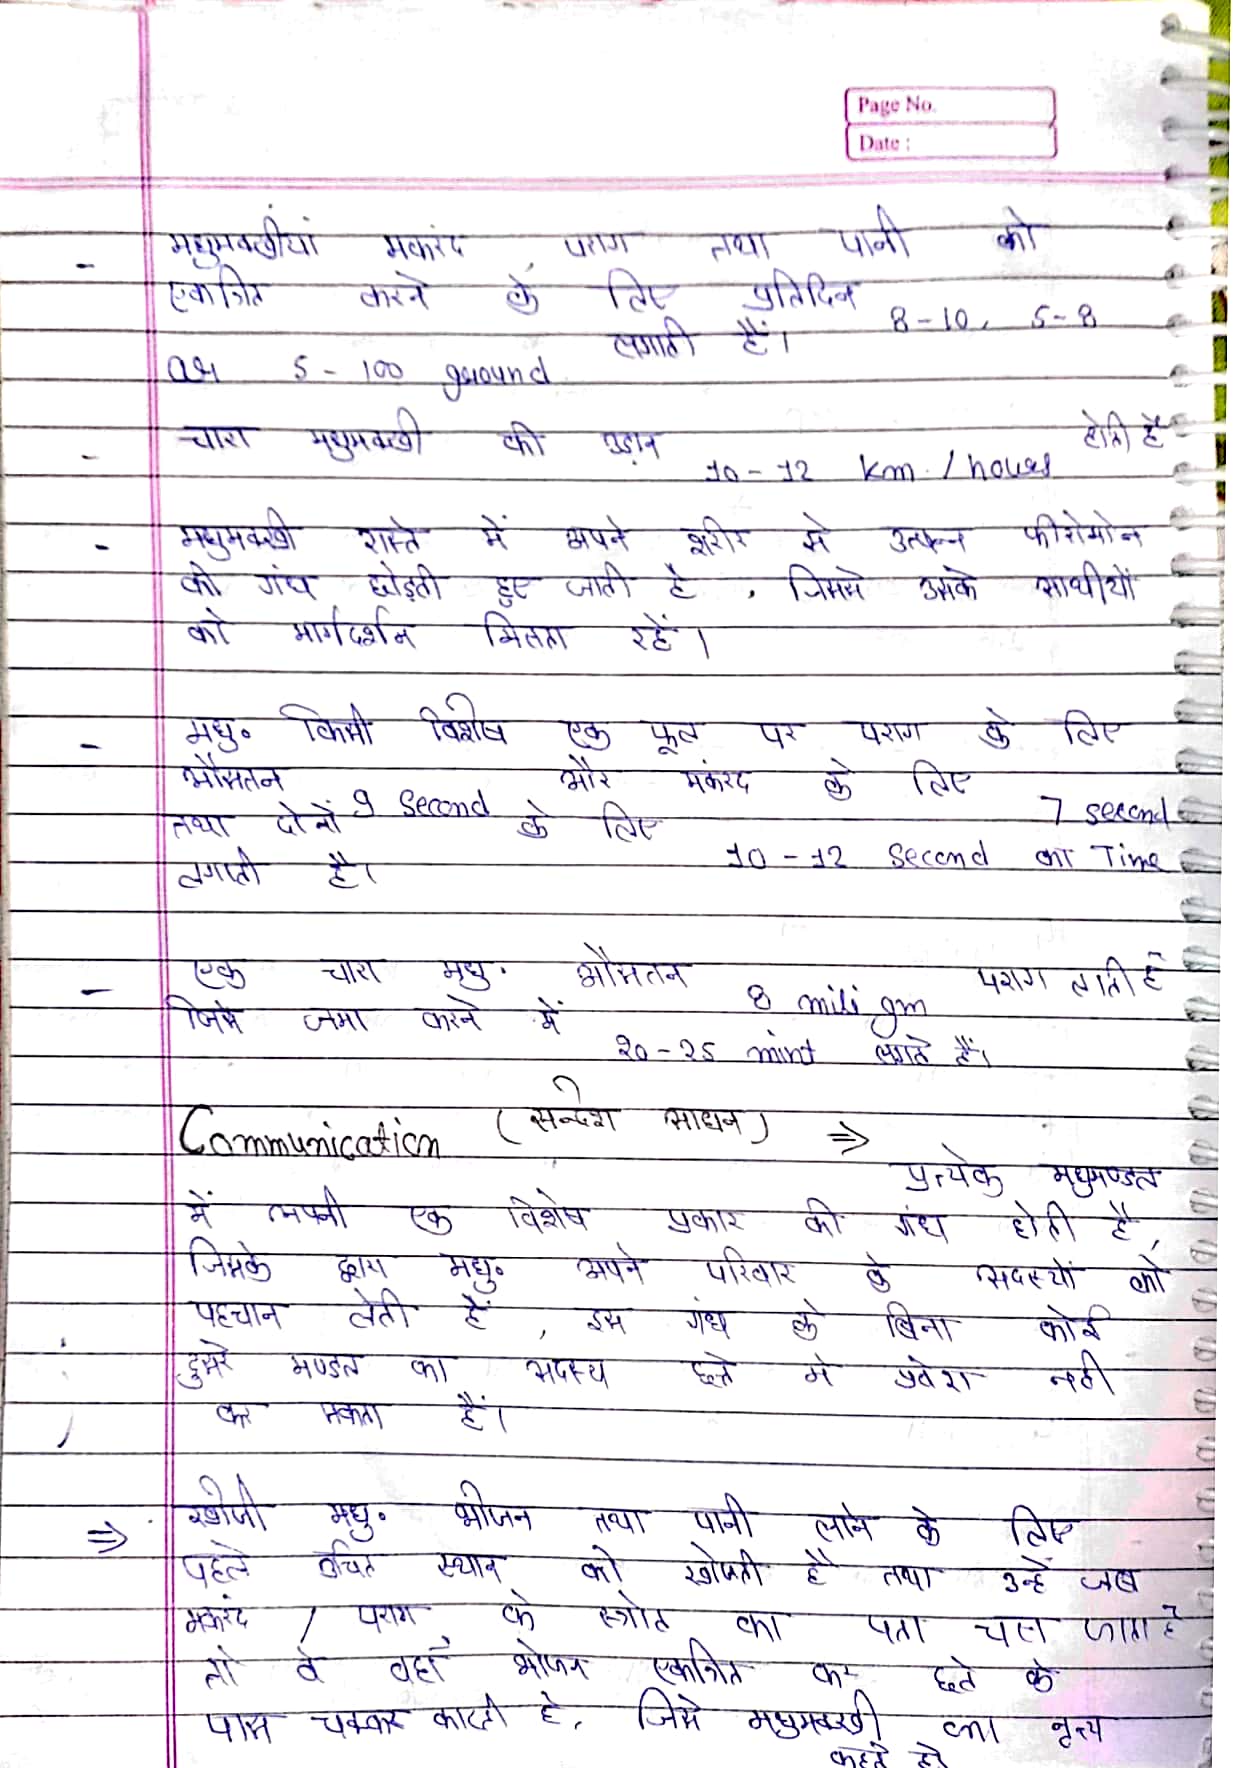 Page No.
Date :
- मधुमक्खीयां मकरंद, पराग तथा पानी को
एकत्रित करने के लिए प्रतिदिन 8-10, 5-8
or 5-100 ground लगाती हैं।
- चारा मधुमक्खी की उड़ान 10-12 km./hours होती है
- मधुमक्खी रास्ते में अपने शरीर से उत्पन्न फीरोमोन
की गंध छोड़ती हुए जाती है, जिससे उसके साथीयों
को मार्गदर्शन मिलता रहें।
- मधु॰ किसी विशेष एक फूल पर पराग के लिए
औसतन 9 second और मकंरद के लिए 7 second
तथा दोनों के लिए 10-12 second का Time
लगाती है।
- एक चारा मधु॰ औसतन 8 mili gm पराग लाती है
जिसे जमा करने में 20-25 mint लगते हैं।
Communication (सन्देश साधन) ⇒
प्रत्येक मधुमण्डल
में अपनी एक विशेष प्रकार की गंध होती है,
जिसके द्वारा मधु॰ अपने परिवार के सदस्यों को
पहचान लेती हैं, इस गंध के बिना कोई
दुसरे मण्डल का सदस्य छत्ते मे प्रवेश नही
कर सकता हैं।
⇒ खोजी मधु॰ भोजन तथा पानी लाने के लिए
पहले उचित स्थान को खोजती है तथा उन्हें जब
मकरंद / पराग के स्त्रोत का पता चल जाता है
तो वे वहाँ भोजन एकत्रित कर छत्ते के
पास चक्कर काटती है, जिसे मधुमक्खी का नृत्य
कहते है।